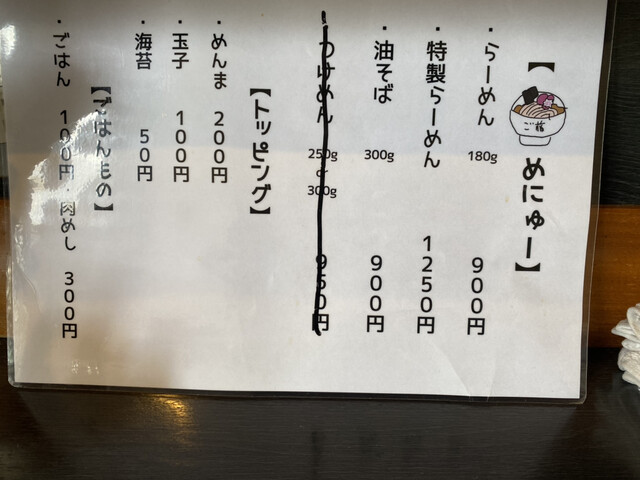 【ご麺めにゅー】
・らーめん 180g 900円
・特製らーめん 1250円
・油そば 300g 900円
・つけめん 250g or 300g 950円
【トッピング】
・めんま 200円
・玉子 100円
・海苔 50円
【ごはんもの】
・ごはん 100円・肉めし 300円